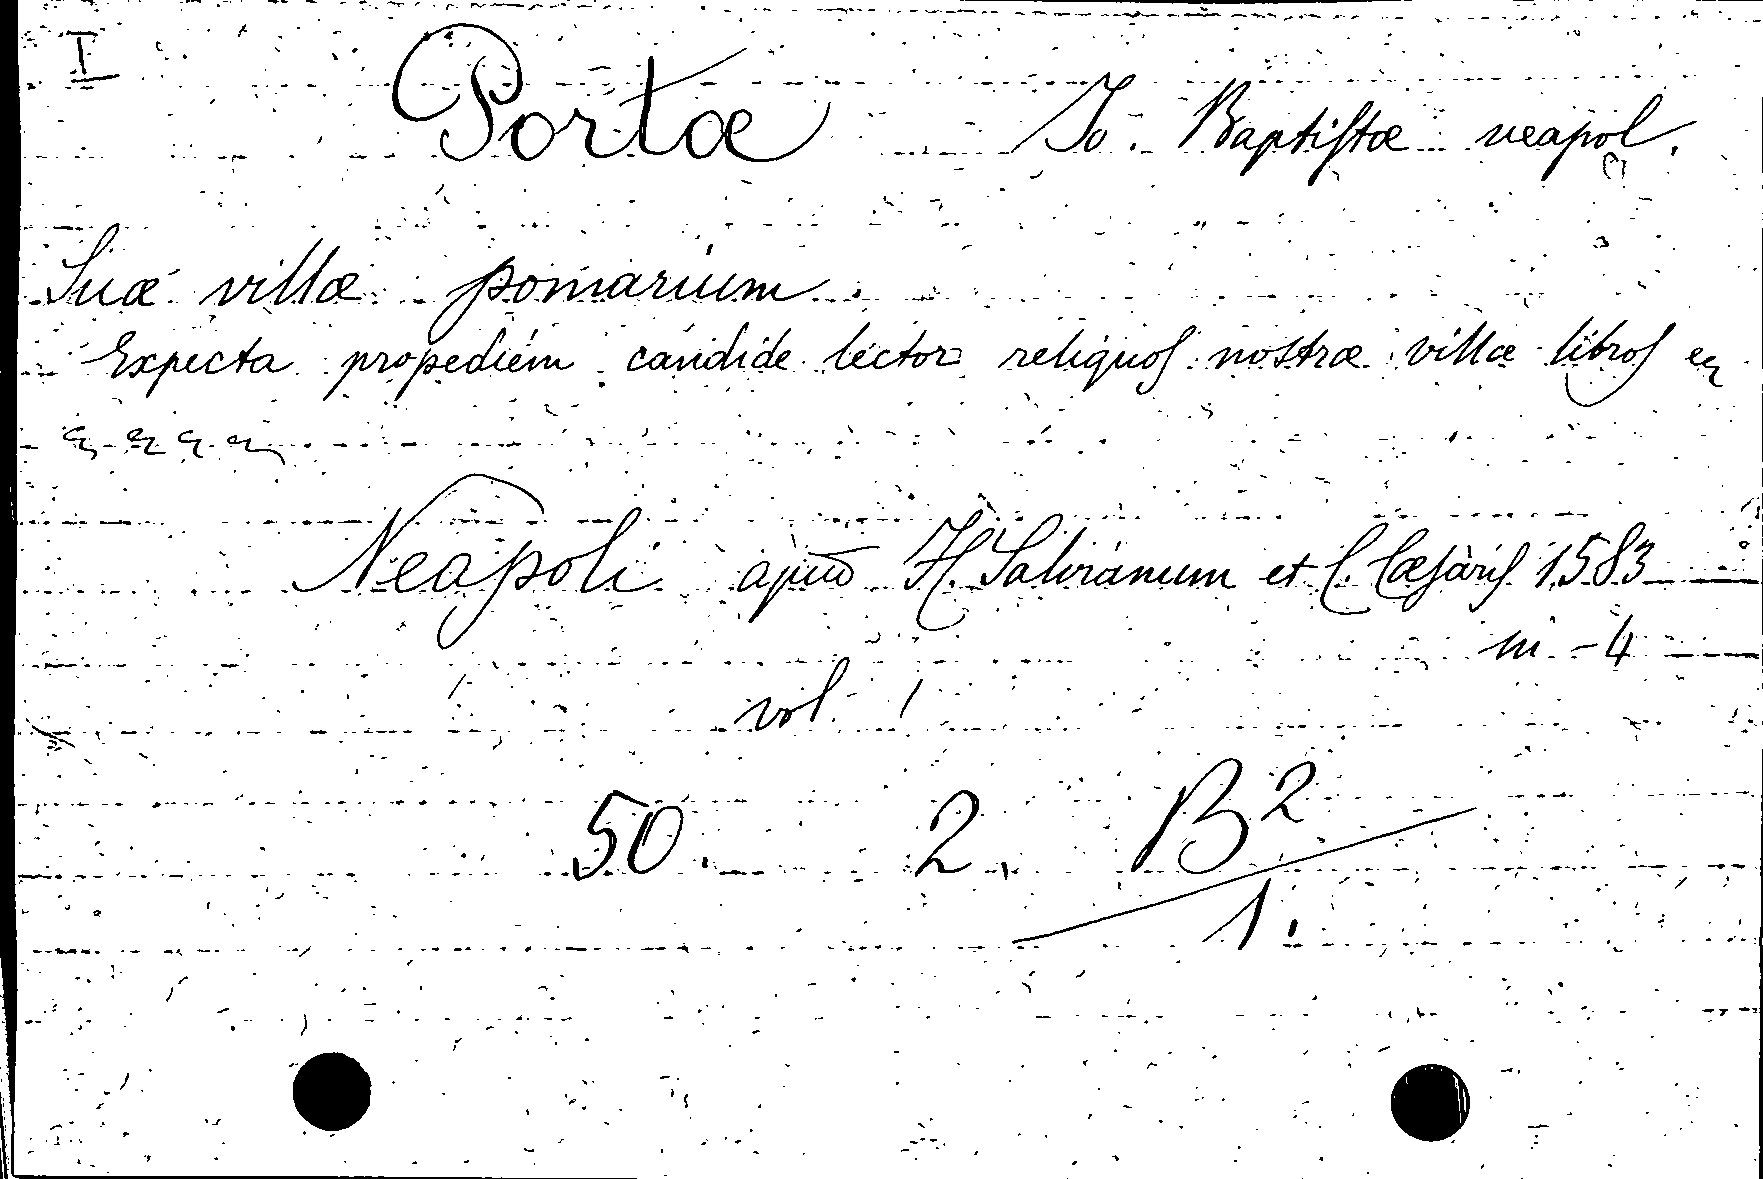 I
Portæ Jo. Baptiſtæ neapol.
Suæ villæ pomarium
Expecta propediem candide lector reliquoſ nostræ villæ libroſ
Neapoli apud H. Salvianum et C. Cæſariſ 1583
in-4
vol. 1
50. 2. B²
1.